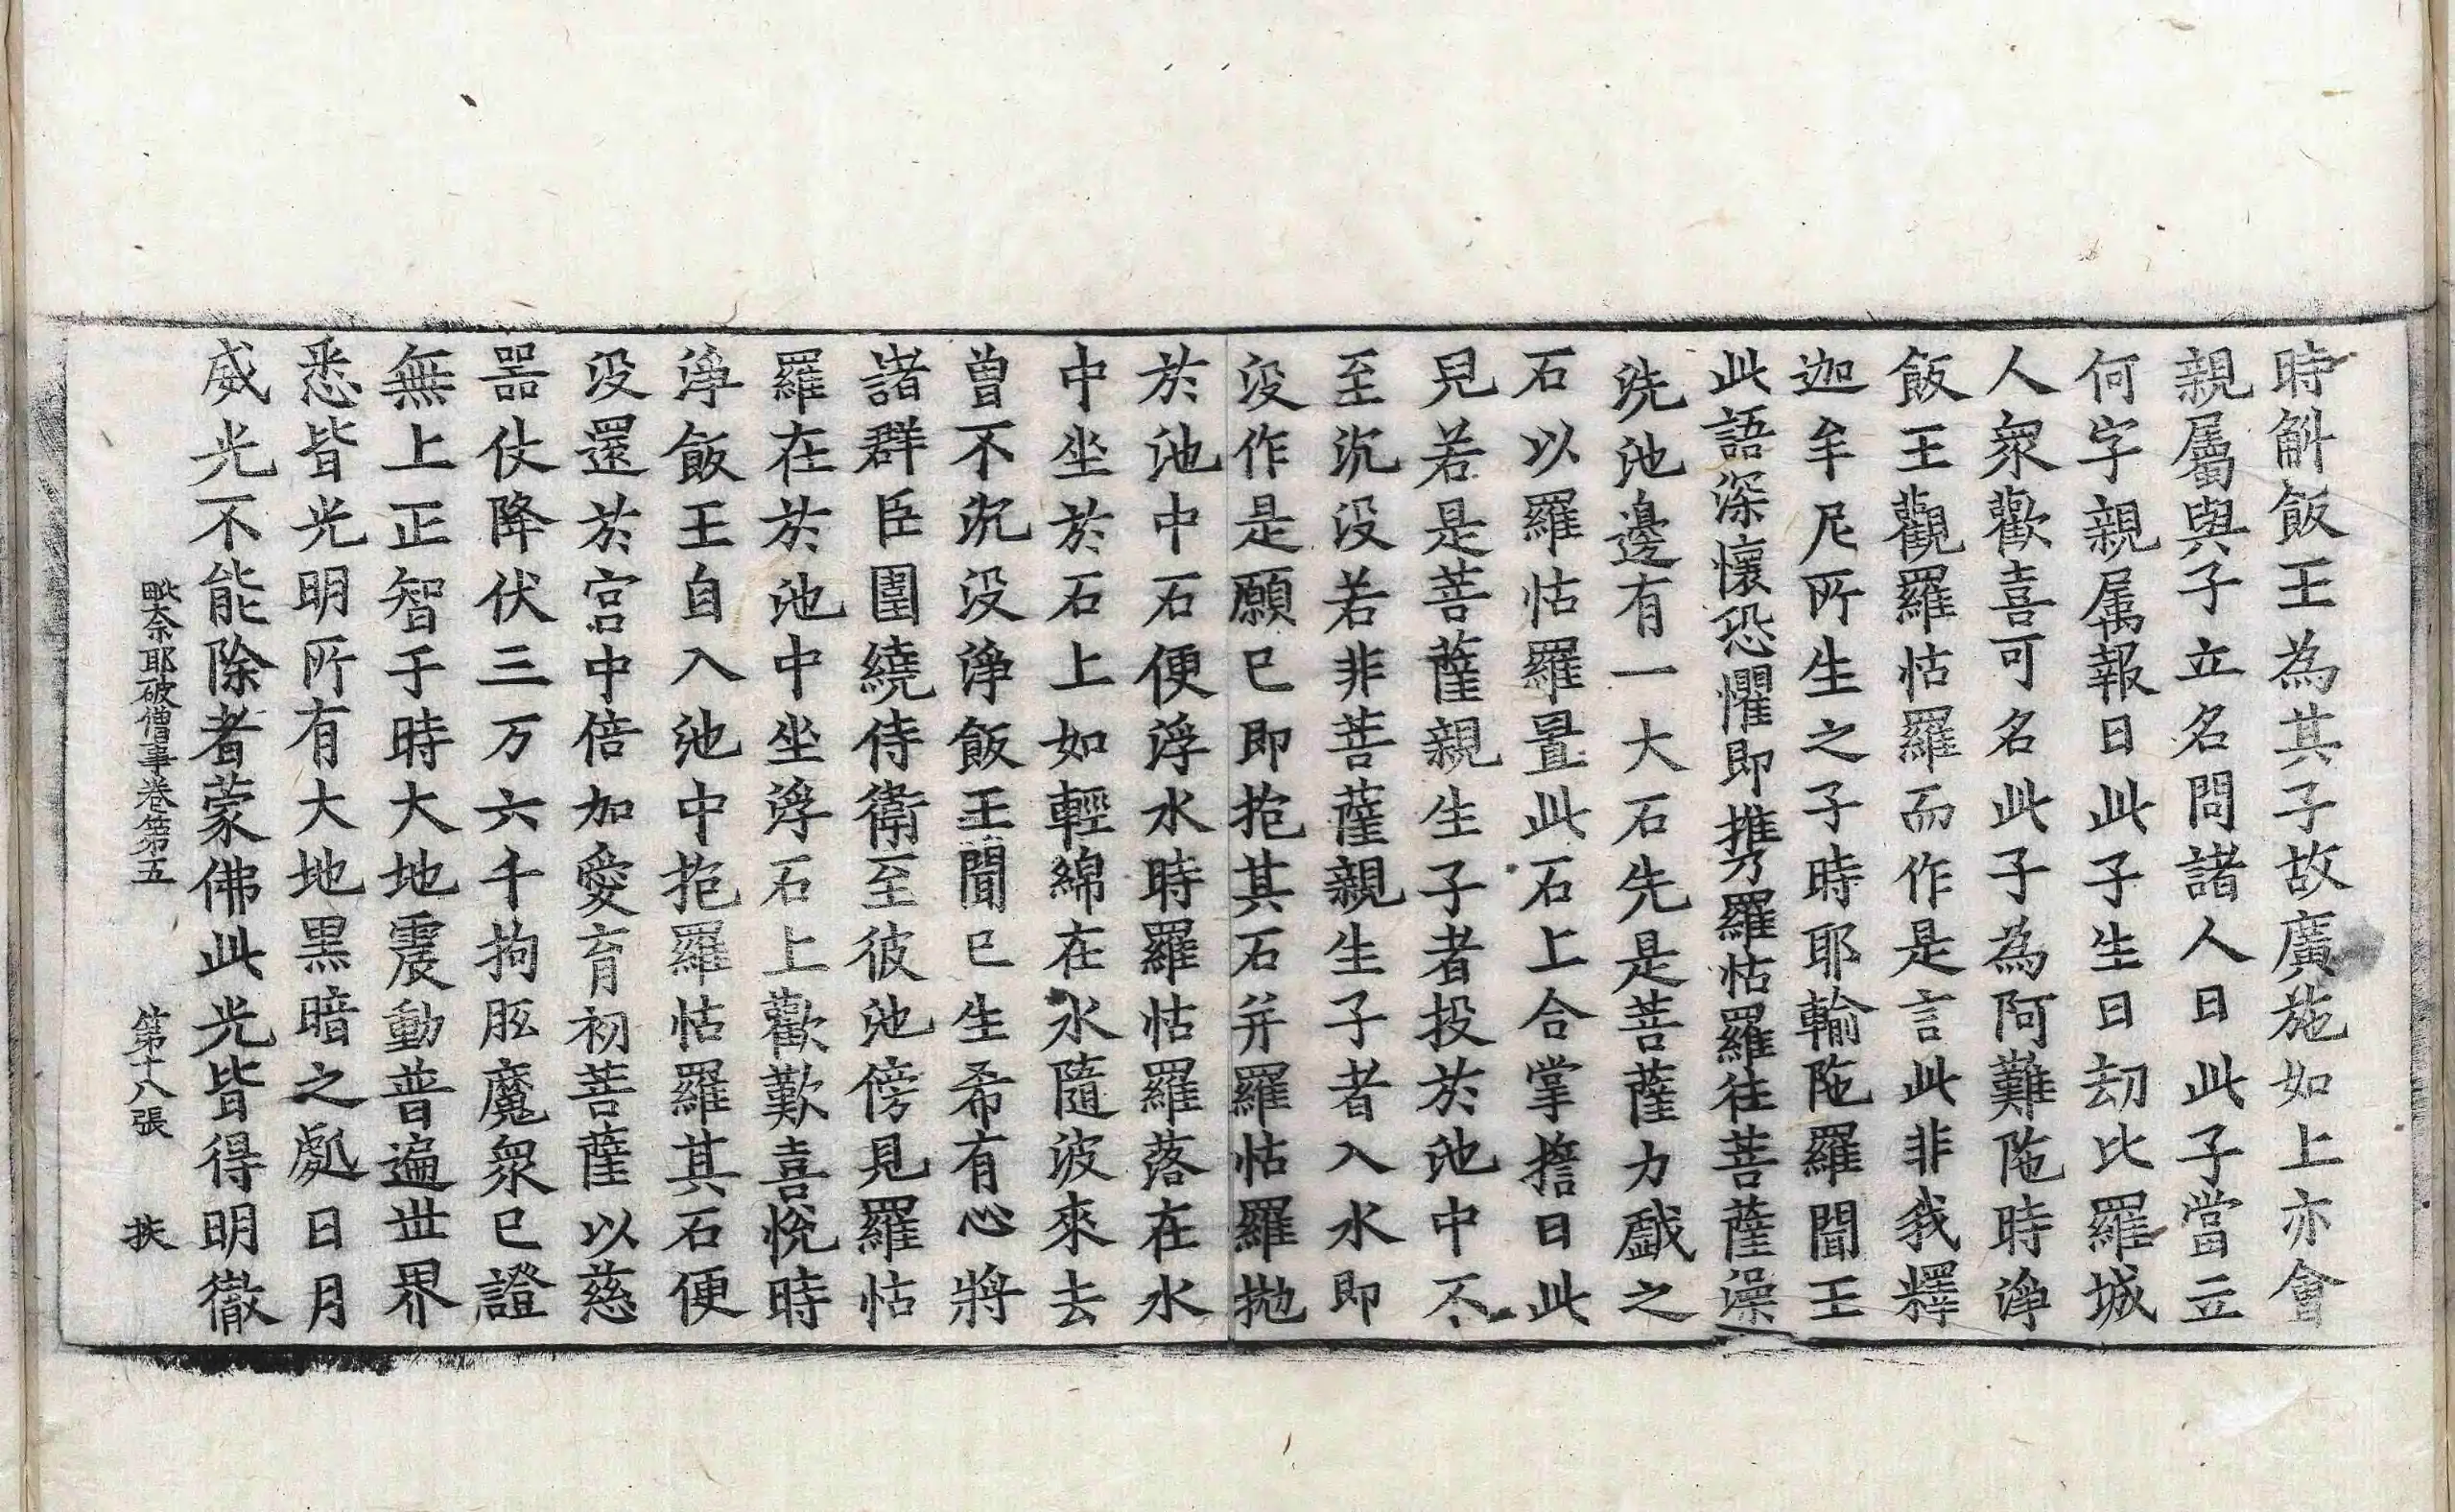 時斛飯王為其子故廣施如上亦會
親屬與子立名問諸人曰此子當立
何字親属報曰此子生日劫比羅城
人衆歡喜可名此子為阿難陁時淨
飯王觀羅怙羅而作是言此非我釋
迦牟尼所生之子時耶輸陁羅聞王
此語深懷恐懼即携乃羅怙羅往菩薩澡
洗池邊有一大石先是菩薩力戱之
石以羅怙羅置此石上合掌擔曰此
兒若是菩薩親生子者投於池中不
至沉没若非菩薩親生子者入水即
没作是願已即抱其石并羅怙羅拋
於池中石便浮水時羅怙羅落在水
中坐於石上如輕綿在水隨波來去
曾不沉没淨飯王聞已生希有心將
諸群臣圍繞侍衛至彼池傍見羅怙
羅在於池中坐浮石上歡歎喜悅時
淨飯王自入池中抱羅怙羅其石便
没還於宫中倍加愛育初菩薩以慈
器仗降伏三万六千拘胝魔衆已證
無上正智于時大地震動普遍世界
悉皆光明所有大地黒暗之處日月
威光不能除者蒙佛此光皆得明徹
毗奈耶破僧事卷第五　第十八張　扶